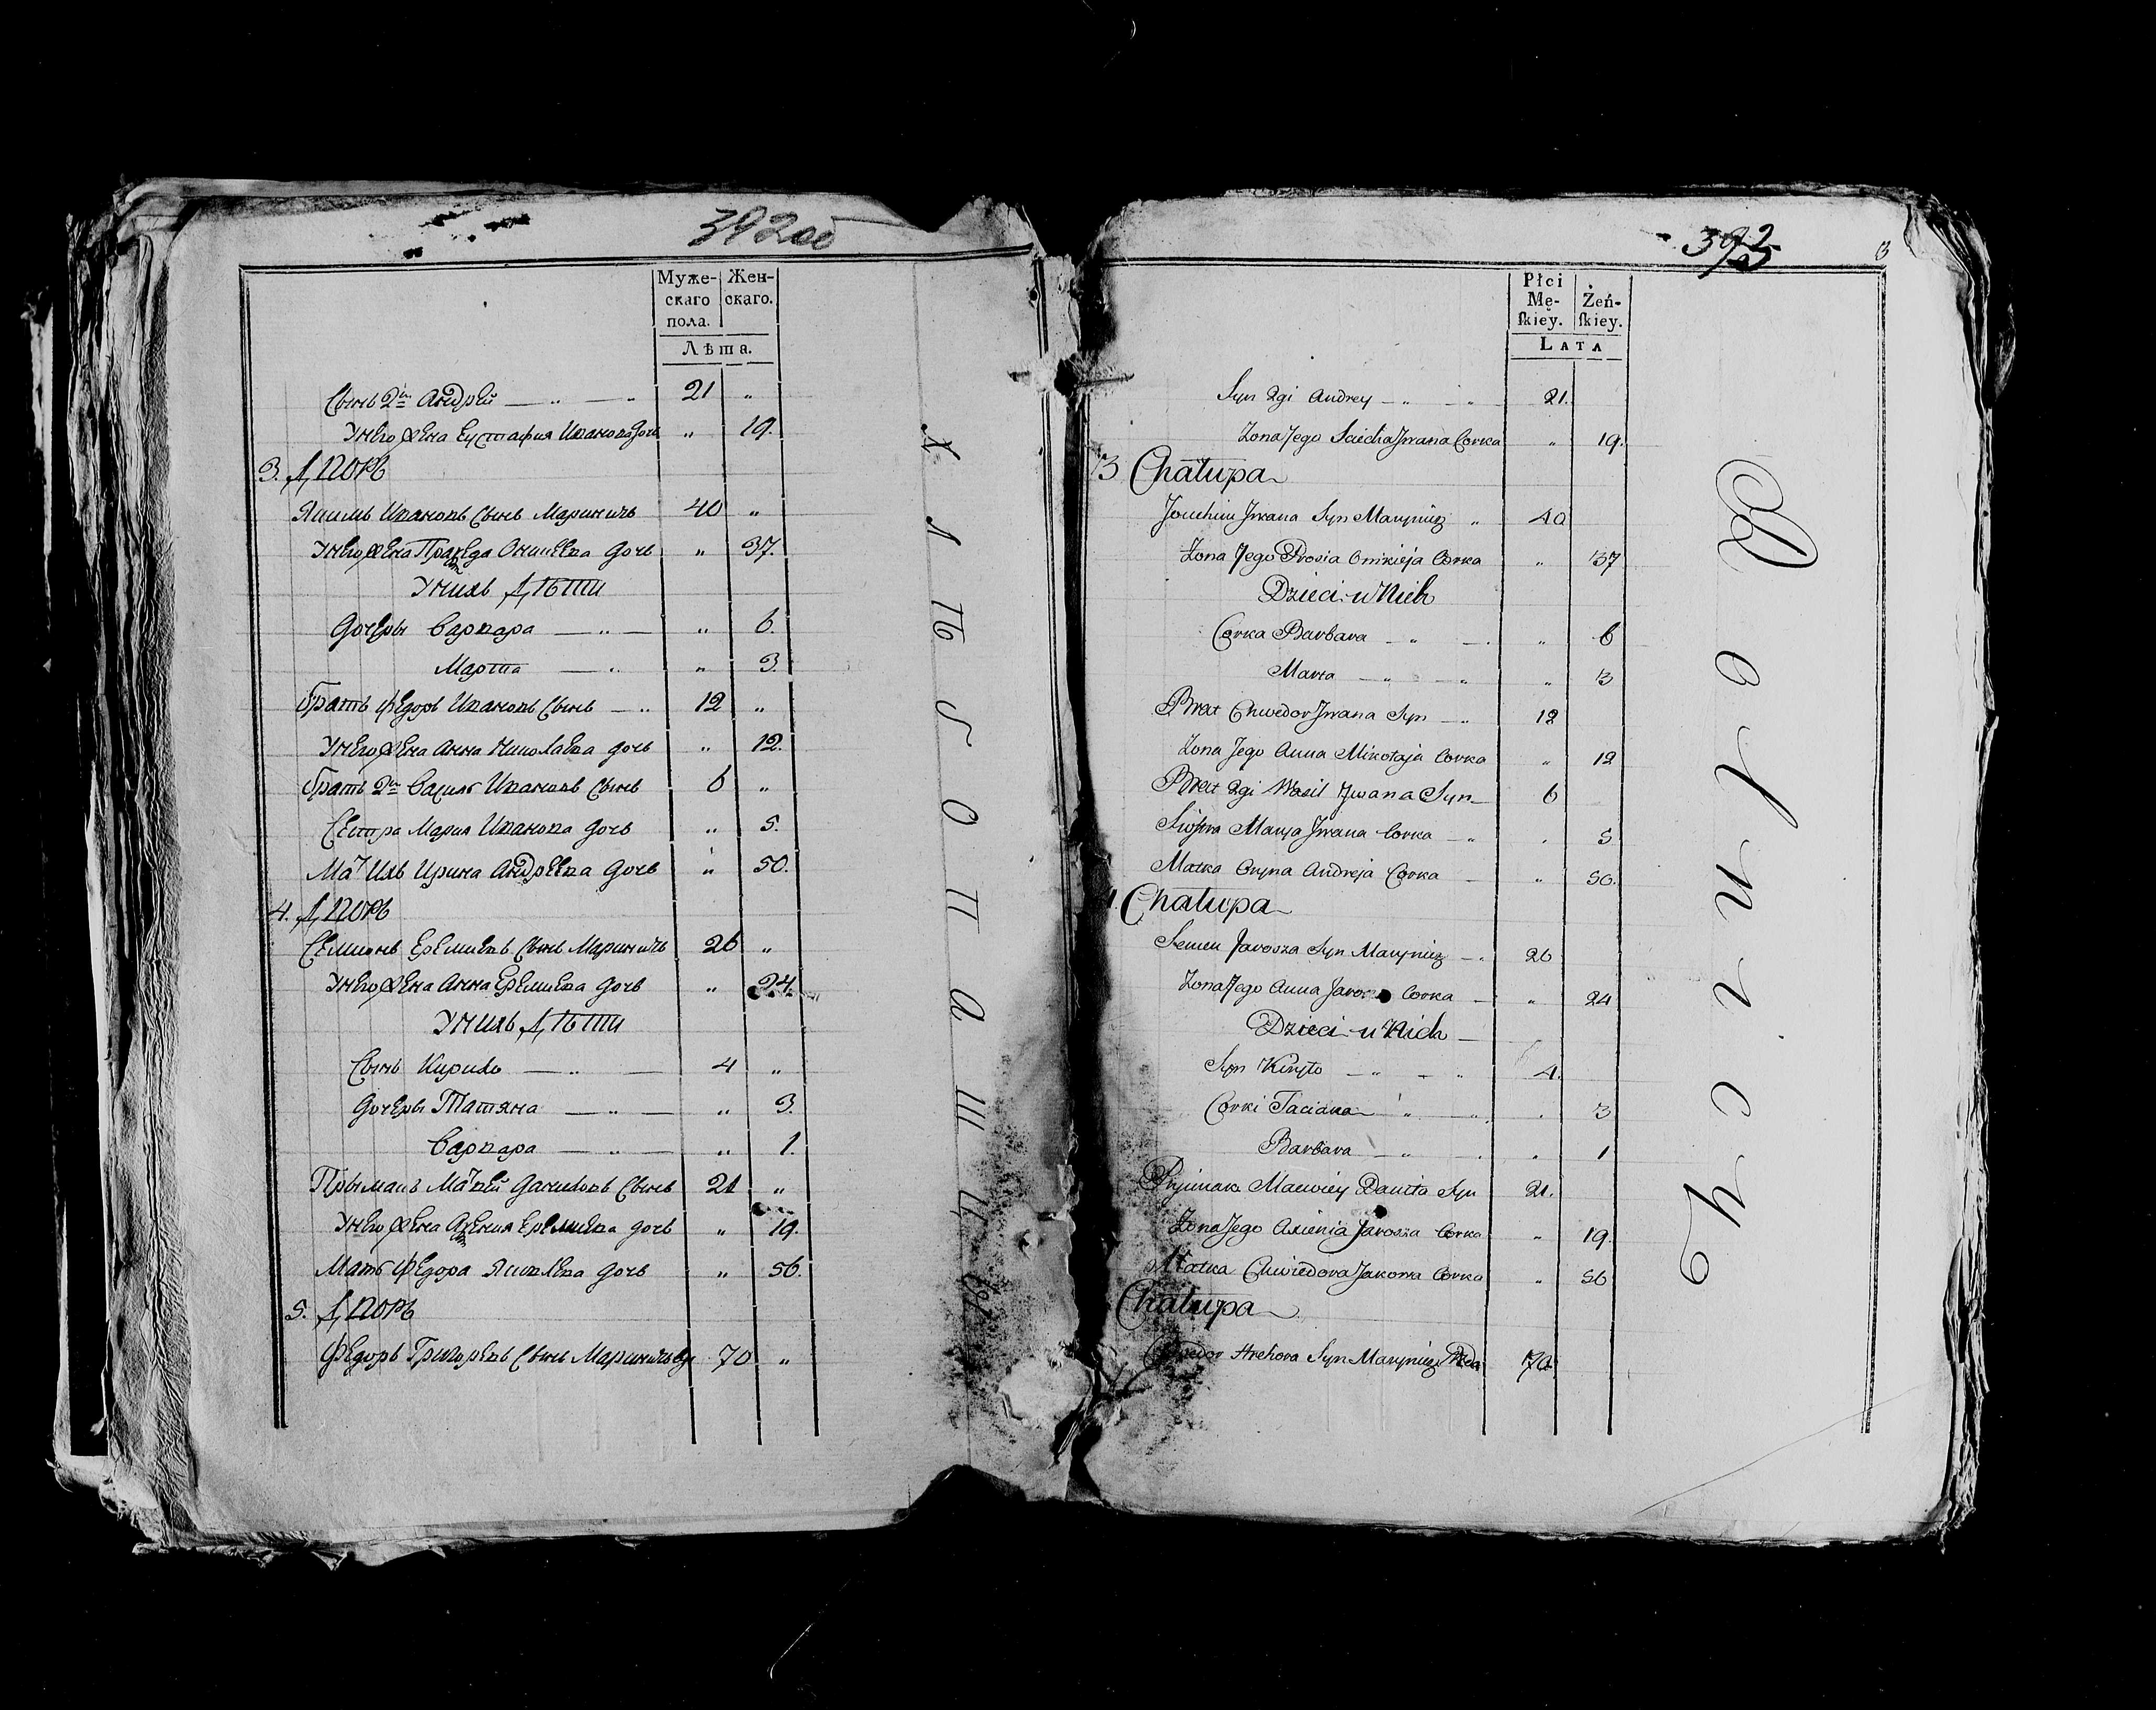 392об
Муже-скаго пола. Жен-скаго.
Лѣта.
Сынъ 2й Андрей — „ — „ 21 „
У него жена Еустафия Иванова дочь „ 19.
3. Дворъ
Якимъ Ивановъ сынъ Мариничъ 40 „
У него жена Оникеева дочь „ 37.
У нихъ дѣти
Дочери Варвара — „ — „ 6.
Марта — „ „ 3.
Братъ Федоръ Ивановъ сынъ — „ 12 „
У него жена Анна Николаева дочь „ 12.
Братъ 2й Василь Ивановъ сынъ 6 „
Сестра Мария Иванова дочь „ 5.
Мать ихъ Ирина Андреева дочь „ 50.
4. Дворъ
Семионъ Еремиевъ сынъ Мариничъ 26 „
У него жена Анна Еремиева дочь „ 24.
У нихъ дѣти
Сынъ Кирило — „ — 4 „
Дочери Татяна — „ — „ 3.
Варвара — „ — „ 1.
Прымакъ Матвей Даниловъ сынъ 21 „
У него жена Аксения Еремиева дочь „ 19.
Мать Федора Яковлева дочь „ 56.
5. Дворъ
Федоръ Григоревъ сынъ Мариничъ 70 „
Хлѣбопашцы
392
3
Płci Mę-skiey. Żeń-skiey.
LATA
Syn 2gi Andrey — „ — „ 21.
Zona Jego Iwana Corka „ 19.
3 Chałupa
Jouchim Iwana Syn Marynicz „ 40
Zona Jego Prosia Onikieja Corka „ 37
Dzieci u Nich
Corka Barbara — „ — „ 6
Marta — „ — „ „ 3
Brat Chwedor Iwana Syn — „ 12
Zona Jego Anna Mikołaja Corka „ 12
Brat 2gi Wasil Iwana Syn — 6
Siostra Marya Iwana Corka — „ „ 5
Matka Oryna Andreja Corka — „ 50.
4. Chałupa
Semen Jarosza Syn Marynicz — „ 26
Zona Jego Anna Jarosza Corka — „ 24
Dzieci u Nich —
Syn Kiryło — „ — „ 4.
Corki Taciana „ — „ „ 3
Barbara — „ „ 1
Pryimak Maciwiey Daniła Syn 21.
Zona Jego Axienia Jarosza Corka „ 19.
Matka Chwiedora Jakowa Corka „ 56
Chałupa
Chwedor Hrehora Syn Marynicz 70
Rolnicy